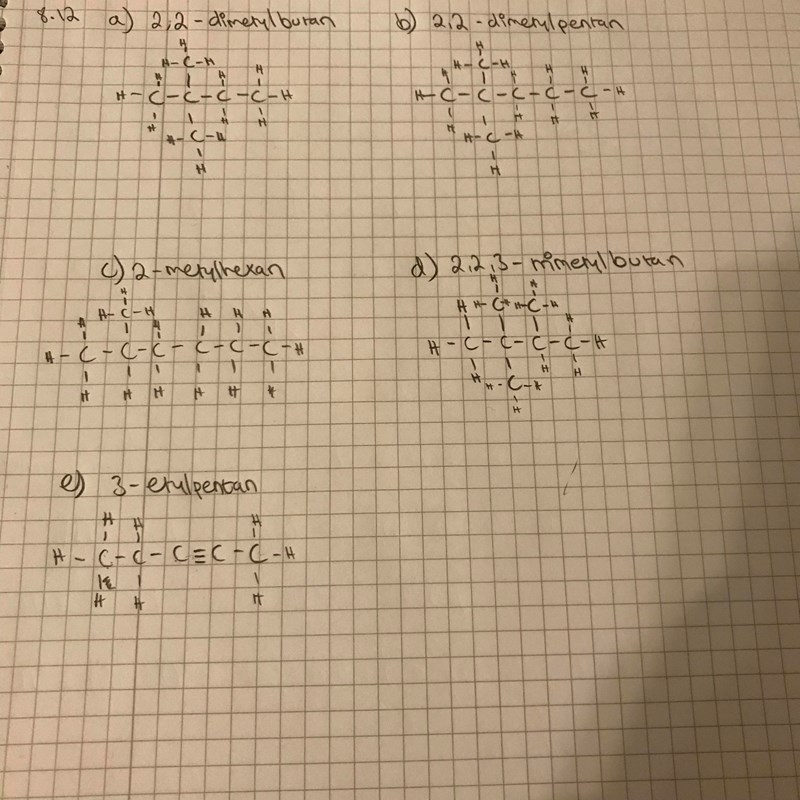 8.12 a) 2,2-dimetylbutan b) 2,2-dimetylpentan
H
H-C-H
H H H
H-C-C-C-C-H
H H H
H-C-H
H
H
H-C-H
H H H H
H-C-C-C-C-C-H
H H H H
H-C-H
H
c) 2-metylhexan d) 2,2,3-trimetylbutan
H
H-C-H
H H H H H
H-C-C-C-C-C-C-H
H H H H H H
H H
H H-C H-C-H
H
H-C-C-C-C-H
H H H
H-C-H
H
e) 3-etylpentan
H H H
H-C-C-C≡C-C-H
H H H